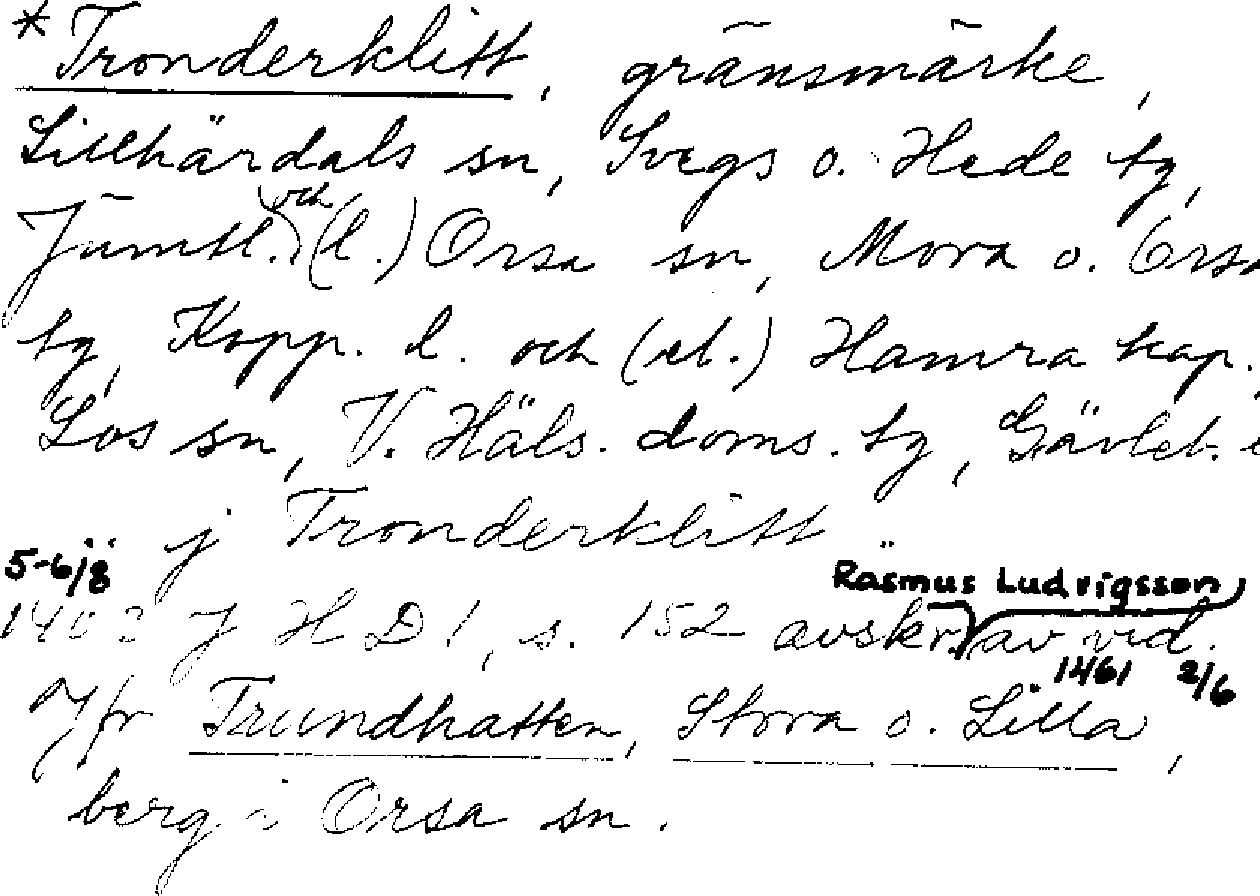 *Tronderklitt, gränsmärke,
Lillhärdals sn, Svegs o. Hede tg,
Jämtl. och (l.) Orsa sn, Mora o. Orsa
tg, Kopp. l. och (el.) Hamra kap.,
Los sn, V. Häls. doms. tg, Gävleb.
j Tronderklitt
5-6/8 Rasmus Ludvigsson
1403 J H D 1, s. 152 avskr. av vid.
1461 2/6
Jfr Trundhatten, Stora o. Lilla,
berg i Orsa sn.